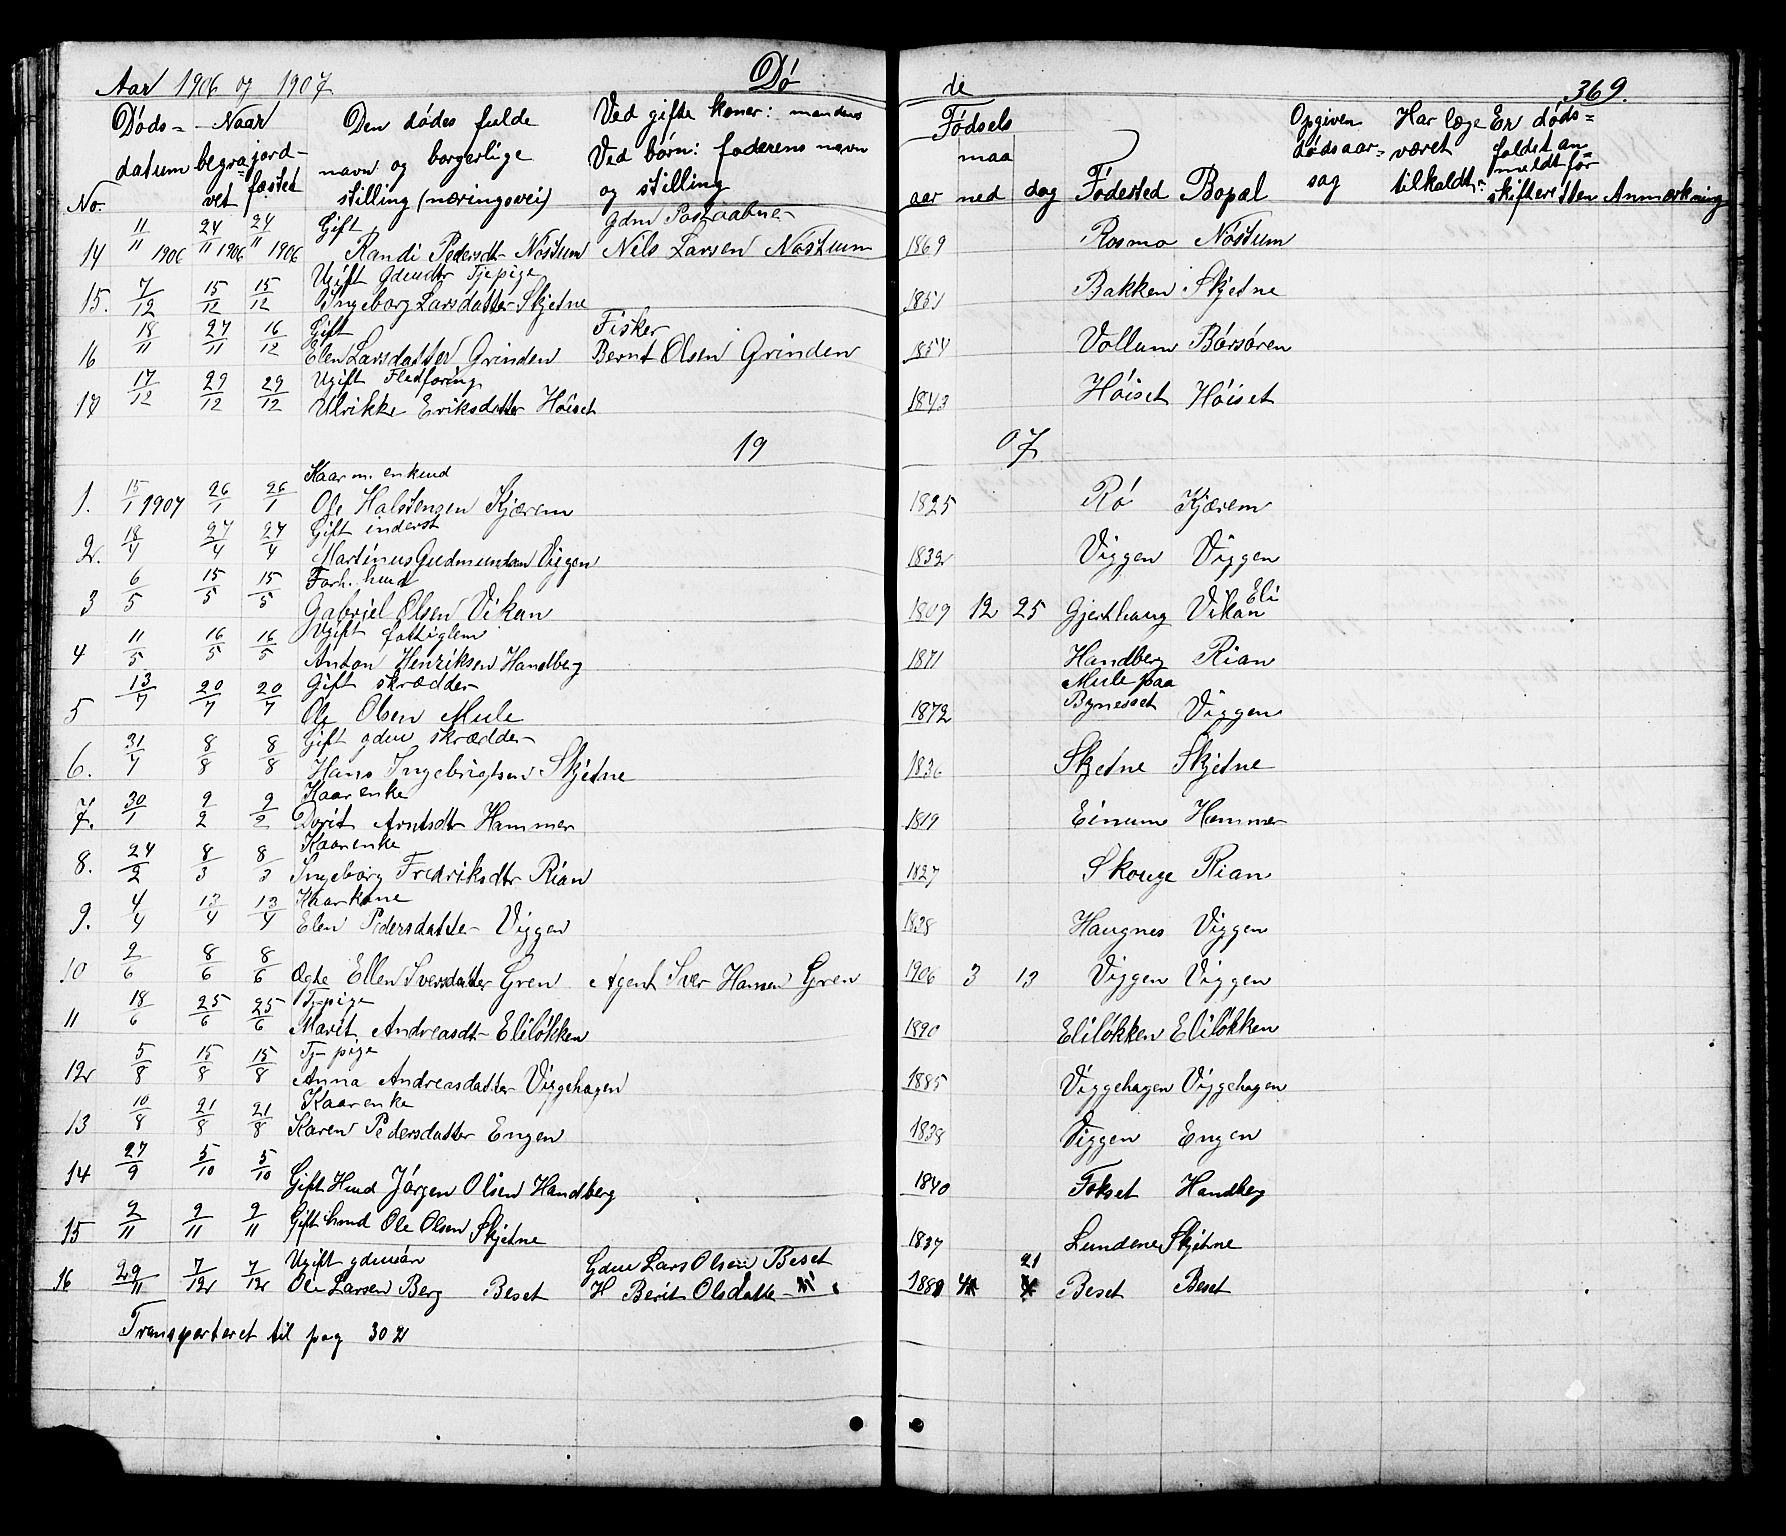 Aar 1906 og 1907 Dø de 369.
No. Døds-datum Naar begravet jordfæstet Den dødes fulde navn og borgerlige stilling (næringsvei) Ved gifte koner: mandens Ved børn: faderens navn og stilling Fødsels aar maaned dag Fødested Bopæl Opgiven dødsaarsag Har læge været tilkaldt Er dødsfaldet anmeldt for skifteretten Anmærkning
Gift gdm Postaabner
14 11/11 1906 24/11 1906 24/11 1906 Randi Pedersdtr Nostum Nils Larsen Nostum 1869 Rosmo Nostum
Ugift gdmdtr Tjepige
15. 7/12 15/12 15/12 Ingeborg Larsdatter Skjetne 1851 Bakken Skjetne
Gift Fisker
16 18/11 27/11 16/12 Elen Larsdatter Grinden Bernt Olsen Grinden 1854 Vollum Børsøren
Ugift Fledføring
17 17/12 29/12 29/12 Ulrikke Eriksdatter Høiset 1843 Høiset Høiset
19 07
Kaarm. enkemd
1. 15/1 1907 26/1 26/1 Ole Halstensen Kjærem 1825 Rø Kjærem
Gift inderst
2. 18/4 27/4 27/4 Martinus Gudmundsen Viggen 1832 Viggen Viggen
Forh. husd
3 6/5 15/5 15/5 Gabriel Olsen Vikan 1809 12 25 Gjerthaug Vikan Eli
Ugift fattiglem
4 11/5 16/5 16/5 Anton Henriksen Handberg 1871 Handberg Rian
Gift skrædder
5 13/7 20/7 20/7 Ole Olsen Mule 1872 Mule paa Bynesset Viggen
Gift gdm skrædder
6. 31/7 8/8 8/8 Hans Ingebrigtsen Skjetne 1836 Skjetne Skjetne
Kaarenke
7. 30/1 9/2 9/2 Dorit Arntsdtr Hammer 1819 Einum Hammer
Kaarenke
8. 24/2 8/3 8/3 Ingeborg Fredriksdtr Rian 1827 Skouge Rian
Kaarkone
9. 4/4 13/4 13/4 Elen Pedersdatter Viggen 1838 Haugnes Viggen
10 2/6 8/6 8/6 Ægte Ellen Sversdatter Gren Agent Sver Hansen Gren 1906 3 13 Viggen Viggen
Tj-pige
11 18/6 25/6 25/6 Marit Andreasdtr Eliløkken 1890 Eliløkken Eliløkken
Tj-pige
12 5/8 15/8 15/8 Anna Andreasdatter Viggehagen 1885 Viggehagen Viggehagen
Kaarenke
13 10/8 21/8 21/8 Karen Pedersdatter Engen 1838 Viggen Engen
14 27/9 5/10 5/10 Gift Hmd Jørgen Olsen Handberg 1840 Fokset Handberg
15 2/11 9/11 9/11 Gift hmd Ole Olsen Skjetne 1837 Lundene Skjetne
Ugift gdmsøn Gdm Lars Olsen Beset 21
16 29/11 7/12 7/12 Ole Larsen Berg Beset H Berit Olsdatter 1881 4 Beset Beset
Transporteret til pag 302